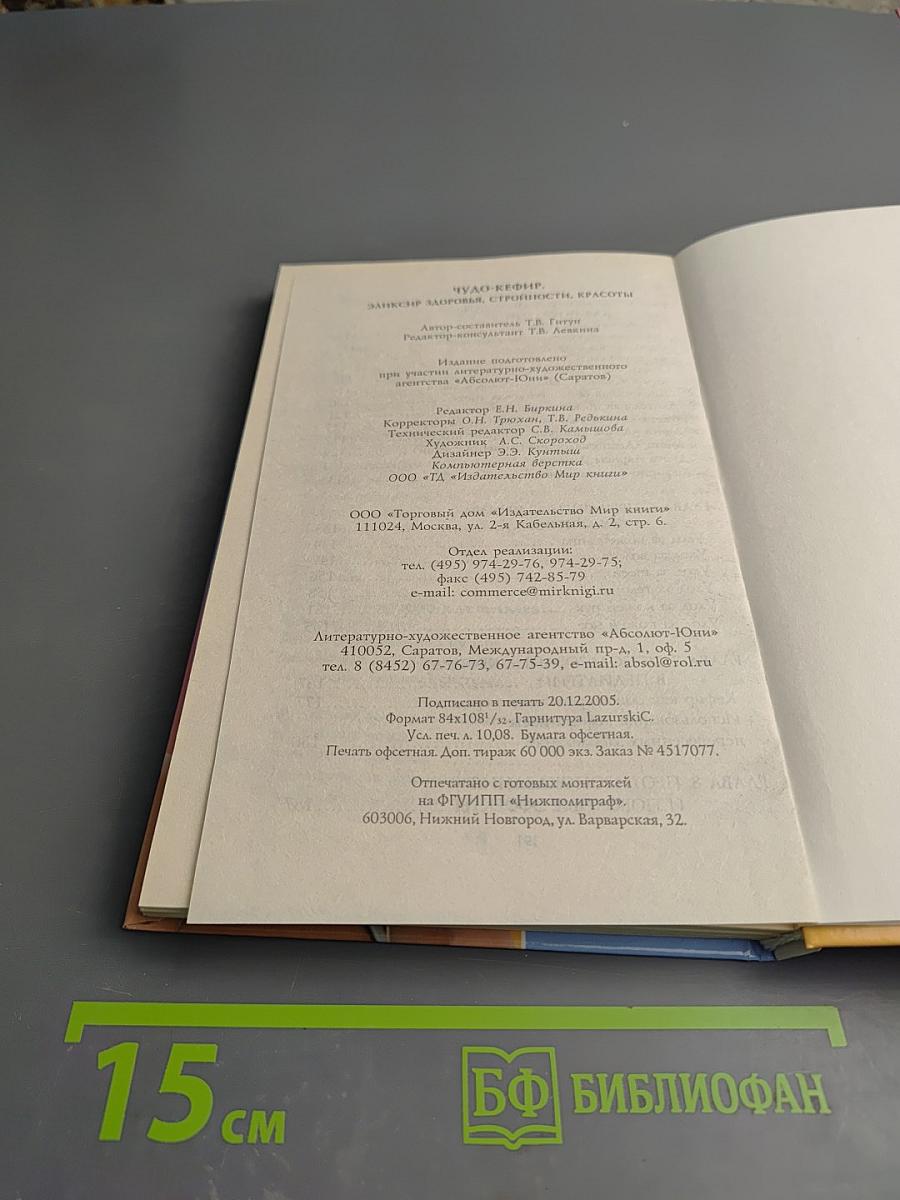 ЧУДО-КЕФИР.
ЭЛИКСИР ЗДОРОВЬЯ, СТРОЙНОСТИ, КРАСОТЫ
Автор-составитель Т.В. Гитун
Редактор-консультант Т.В. Левкина
Издание подготовлено
при участии литературно-художественного
агентства «Абсолют-Юни» (Саратов)
Редактор Е.Н. Биркина
Корректоры О.Н. Трюхан, Т.В. Редькина
Технический редактор С.В. Камышова
Художник А.С. Скороход
Дизайнер Э.Э. Кунтыш
Компьютерная верстка
ООО «ТД «Издательство Мир книги»
ООО «Торговый дом «Издательство Мир книги»
111024, Москва, ул. 2-я Кабельная, д. 2, стр. 6.
Отдел реализации:
тел. (495) 974-29-76, 974-29-75;
факс (495) 742-85-79
e-mail: commerce@mirknigi.ru
Литературно-художественное агентство «Абсолют-Юни»
410052, Саратов, Международный пр-д, 1, оф. 5
тел. 8 (8452) 67-76-73, 67-75-39, e-mail: absol@rol.ru
Подписано в печать 20.12.2005.
Формат 84х108¹/₃₂. Гарнитура LazurskiC.
Усл. печ. л. 10,08. Бумага офсетная.
Печать офсетная. Доп. тираж 60 000 экз. Заказ № 4517077.
Отпечатано с готовых монтажей
на ФГУИПП «Нижполиграф».
603006, Нижний Новгород, ул. Варварская, 32.
15 см
БФ БИБЛИОФАН